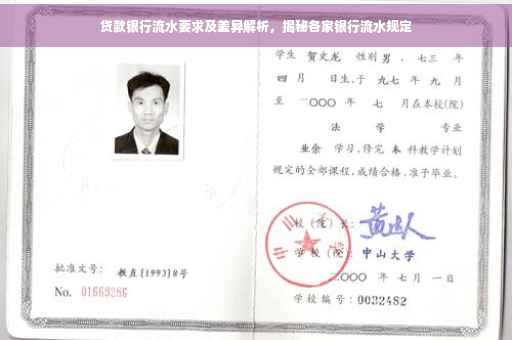 贷款银行流水要求及差异解析，揭秘各家银行流水规定
学生 贺文龙 性别 男，七三 年
四 月 日生,于 九七 年 九 月
至 二〇〇〇 年 七 月在本校(院)
法 学 专业
业余 学习,修完 本 科教学计划
规定的全部课程,成绩合格,准予毕业。
校(院)长:
学校(院): 中山大学
二〇〇〇 年 七 月 一 日
批准文号: 教直(1993)8号
No. 01669286
学校编号: 0032482